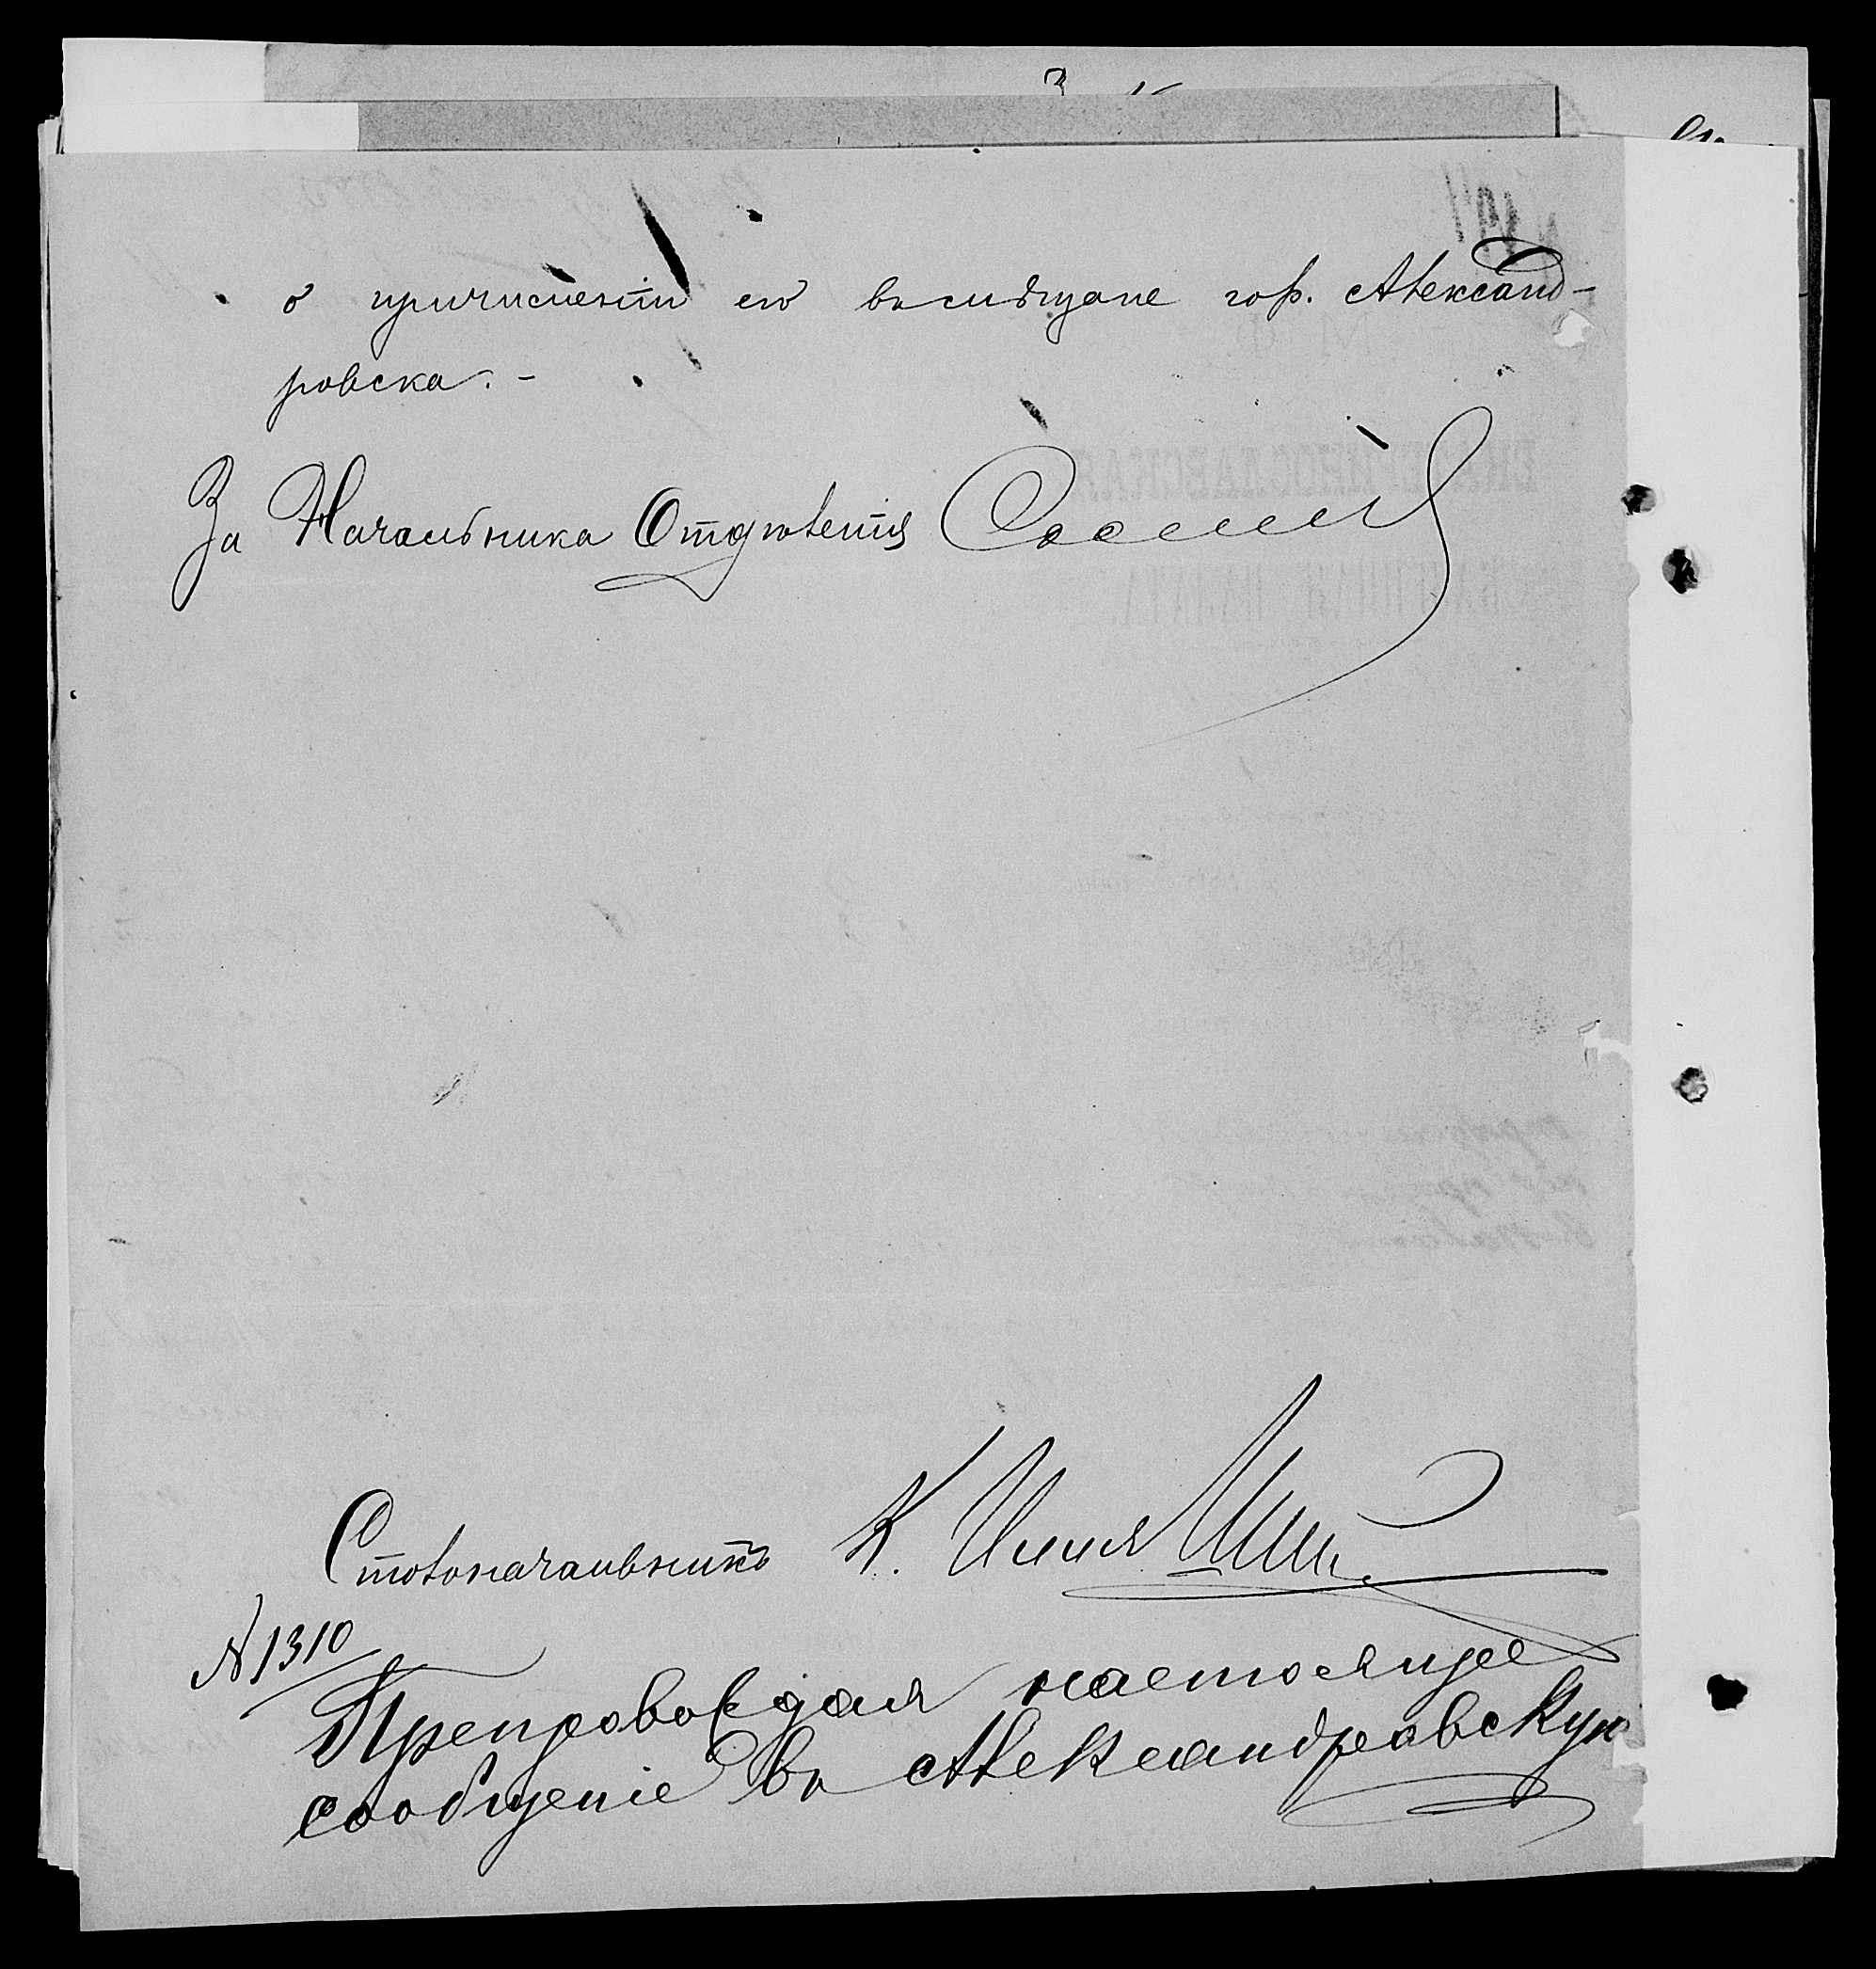 о причисленіи его въ мѣщане гор. Александ-
ровска. -
За Начальника Отдѣленія
Столоначальникъ К.
№ 1310
Препровождая настоящее
сообщеніе въ Александровскую